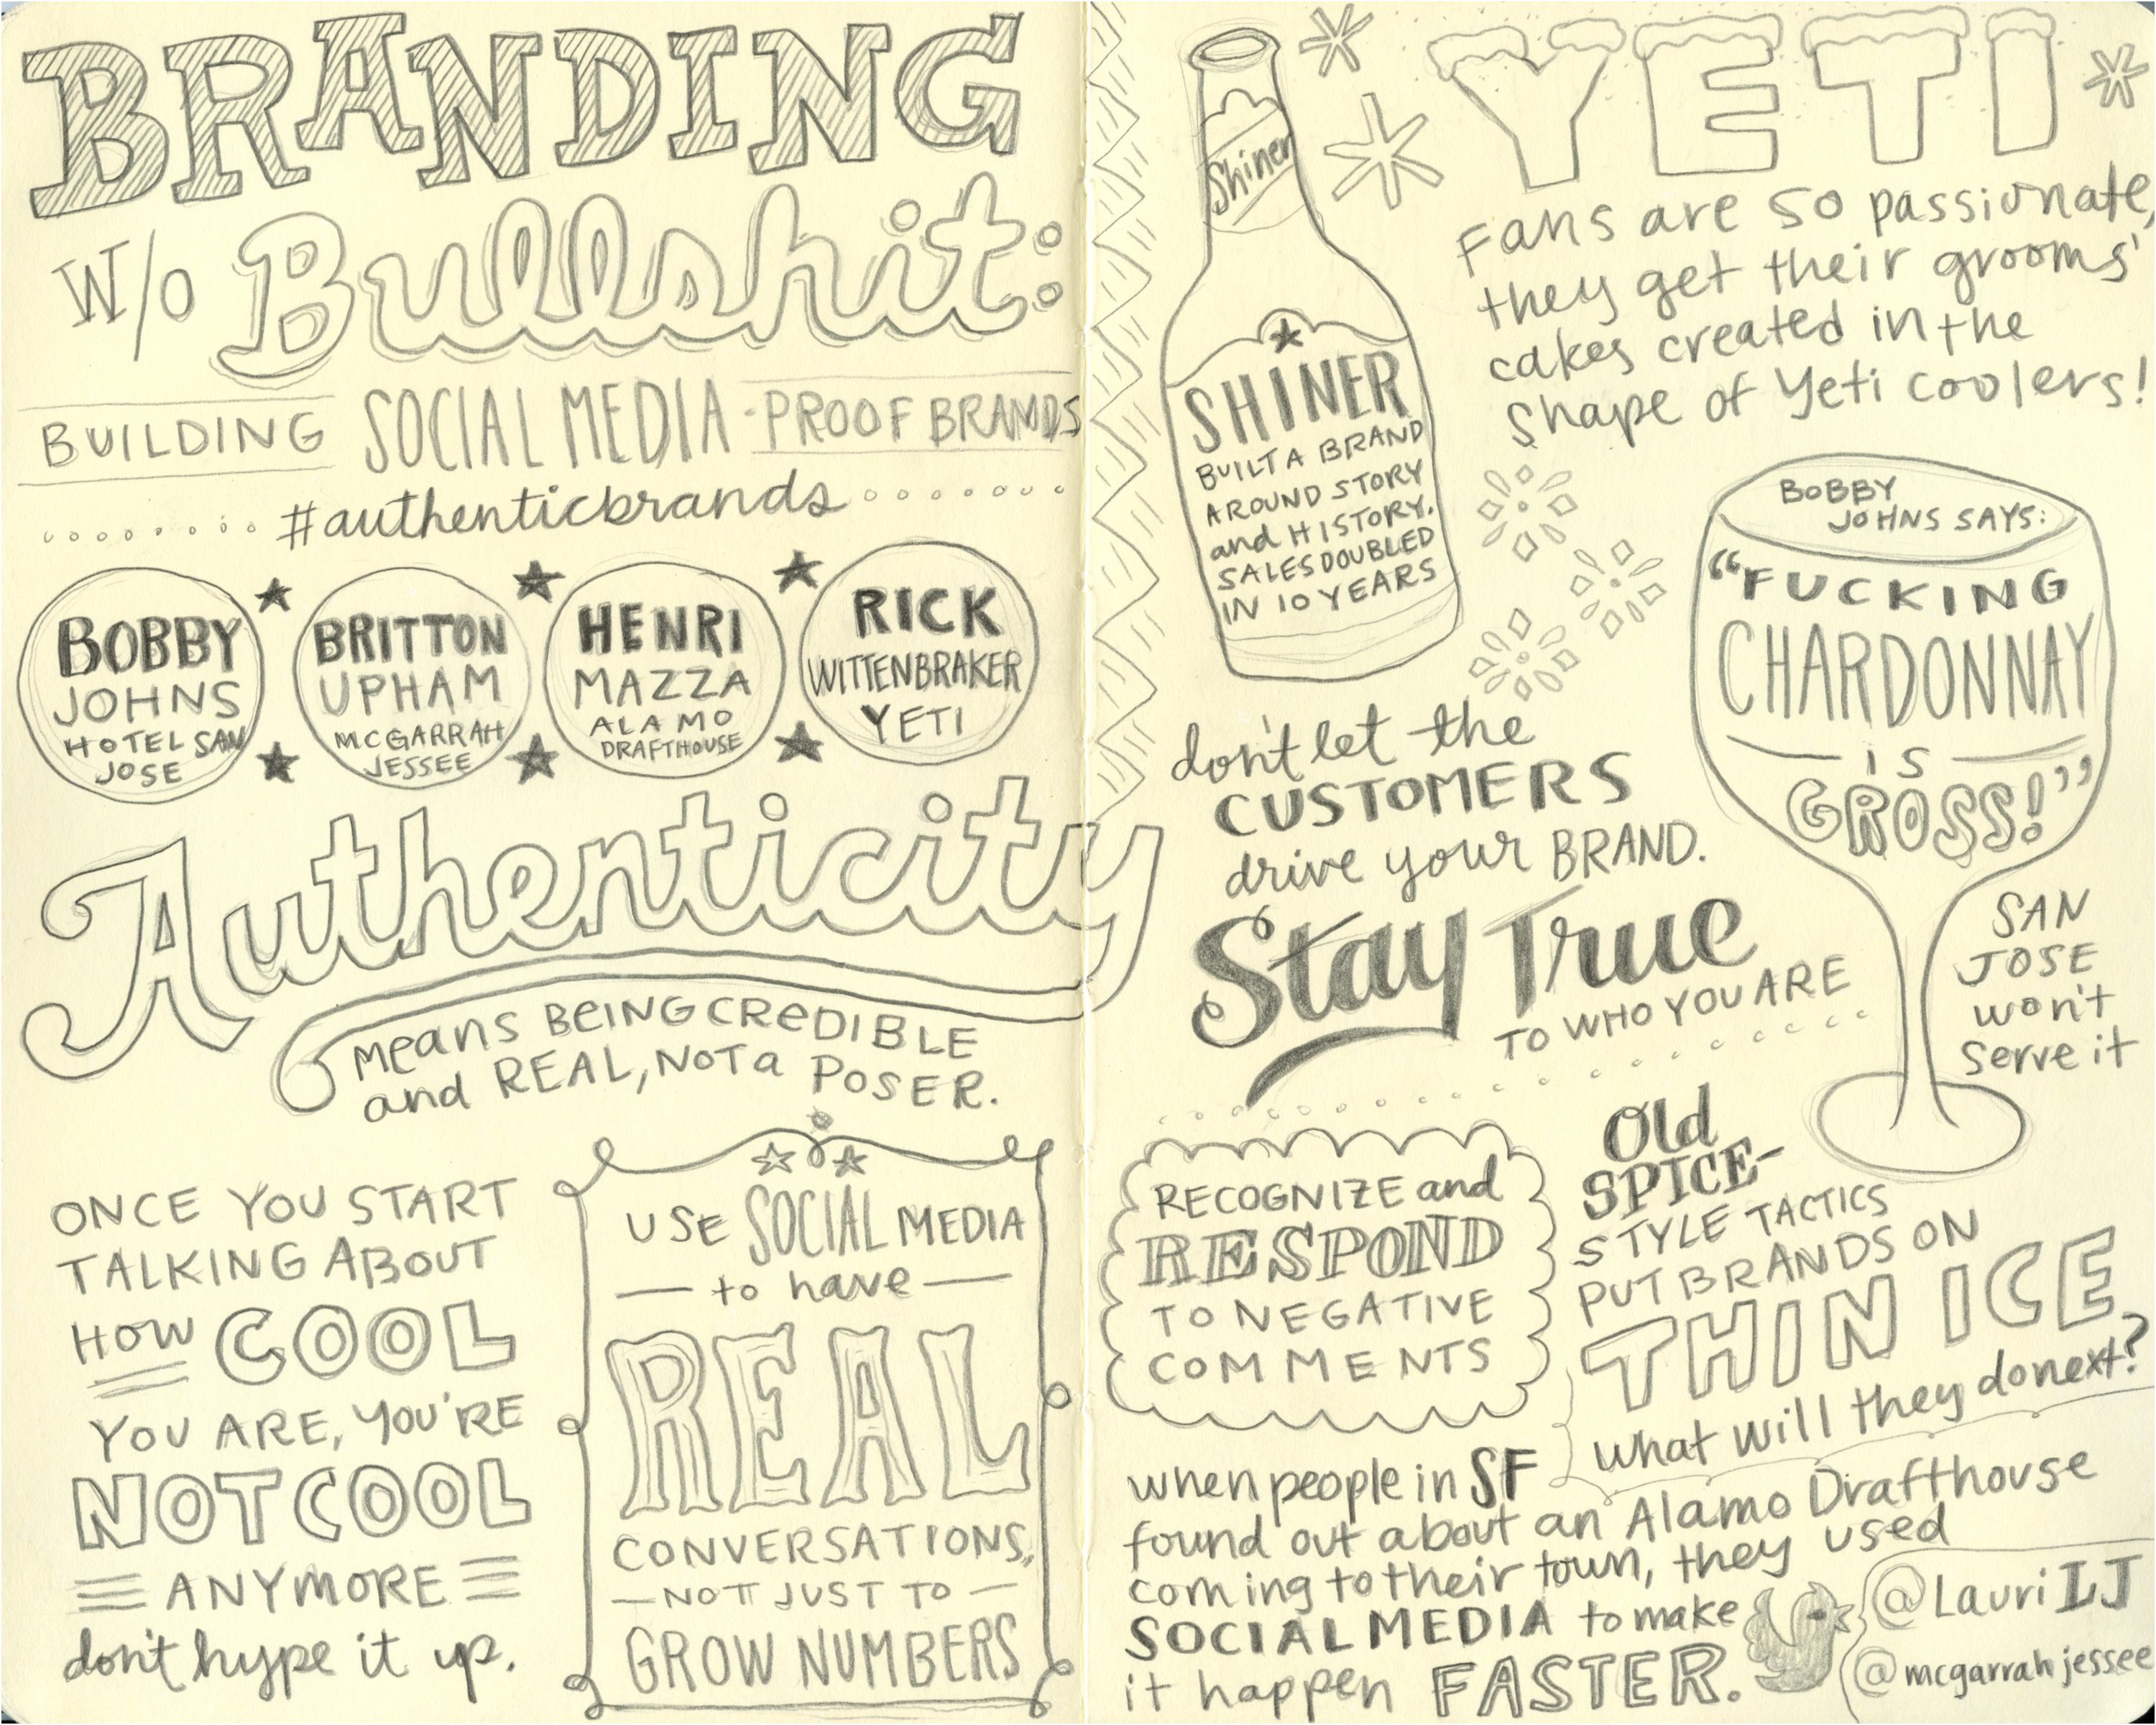 BRANDING
W/O Bullshit:
BUILDING SOCIAL MEDIA-PROOF BRANDS
#authenticbrands
BOBBY
JOHNS
HOTEL SAN
JOSE
BRITTON
UPHAM
MCGARRAH
JESSEE
HENRI
MAZZA
ALAMO
DRAFTHOUSE
RICK
WITTENBRAKER
YETI
Authenticity
means BEING CREDIBLE
and REAL, NOT a POSER.
ONCE YOU START
TALKING ABOUT
HOW COOL
YOU ARE, YOU'RE
NOT COOL
ANYMORE
don't hype it up.
USE SOCIAL MEDIA
to have
REAL
CONVERSATIONS,
NOT JUST TO
GROW NUMBERS
Shiner
SHINER
BUILT A BRAND
AROUND STORY
and HISTORY.
SALES DOUBLED
IN 10 YEARS
YETI
Fans are so passionate,
they get their grooms'
cakes created in the
shape of Yeti coolers!
BOBBY
JOHNS SAYS:
"FUCKING
CHARDONNAY
IS
GROSS!"
SAN
JOSE
won't
serve it
don't let the
CUSTOMERS
drive your BRAND.
Stay True
TO WHO YOU ARE
RECOGNIZE and
RESPOND
TO NEGATIVE
COMMENTS
Old
SPICE-
STYLE TACTICS
PUT BRANDS ON
THIN ICE.
what will they do next?
when people in SF
found out about an Alamo Drafthouse
coming to their town, they used
SOCIAL MEDIA to make
it happen FASTER.
@LauriLJ
@mcgarrahjessee